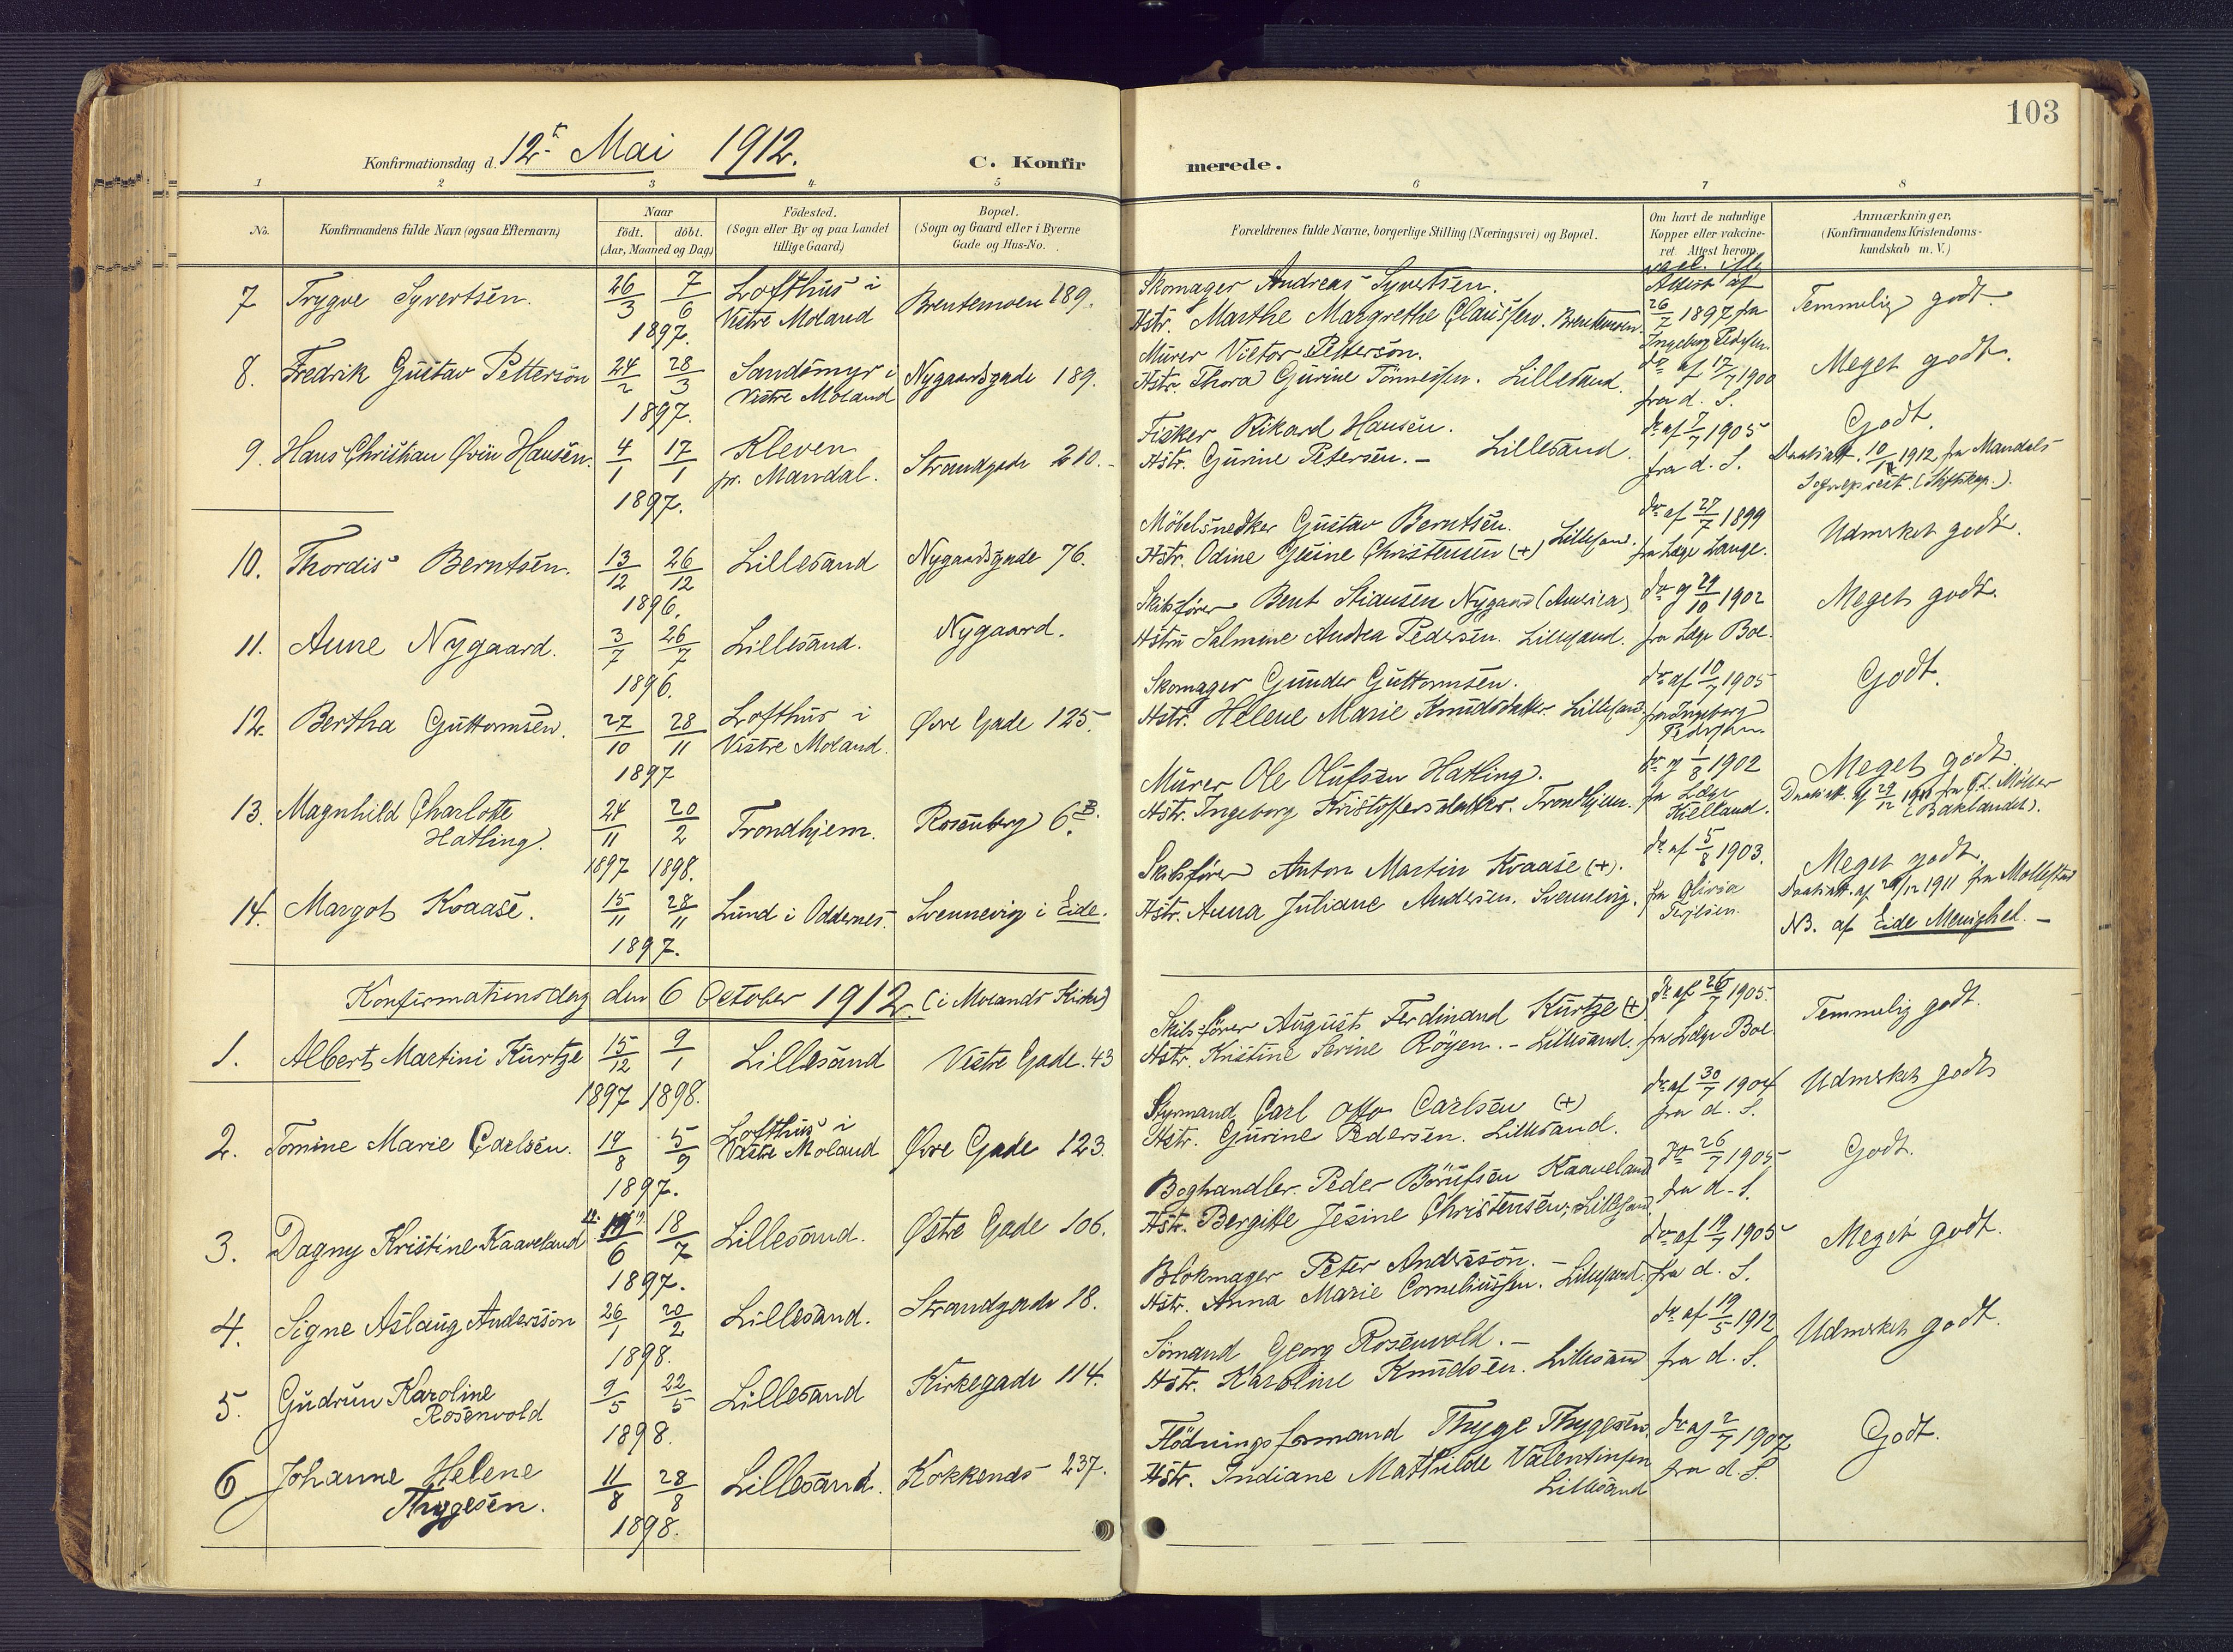 103
Konfirmationsdag d. 12te Mai 1912.
C. Konfirmerede.
1 2 3 4 5 6 7 8
No.
Konfirmandens fulde Navn (ogsaa Efternavn)
Naar
födt. döbt.
(Aar, Maaned og Dag)
Födested.
(Sogn eller By og paa Landet
tillige Gaard)
Bopæl.
(Sogn og Gaard eller i Byerne
Gade og Hus-No.
Forældrenes fulde Navne, borgerlige Stilling (Næringsvei) og Bopæl.
Om havt de naturlige
Kopper eller vakcine-
ret. Attest herom.
Anmærkninger,
(Konfirmandens Kristendoms-
kundskab m. V.)
7 Trygve Syvertsen. 26/3 7/6 1897. Lofthus i
Vestre Moland
Brentemoen 189.
Skomager Andreas Syvertsen.
Hstr. Marthe Margrethe Claussen. Brentemoen.
vacc. iflg
Attest af
26/7 1897 fra
Ingeborg Pedersen.
Temmelig godt.
8. Fredrik Gustav Petterson 24/2 28/3 1897. Sandsmyr i
Vestre Moland
Nygaardsgade 189.
Mürer Victor Petterson.
Hstr. Thora Gurine Tönnessen. Lillesand.
do af 17/7 1900
fra d. S.
Meget godt.
9. Hans Christian Øvin Hansen. 4/1 17/1 1897. Kleven
pr. Mandal.
Strandgade 210.
Fisker Rikard Hansen.
Hstr. Gurine Petersen. - Lillesand.
do af 7/7 1905
fra d. S.
Godt.
Daabsatt. 10/1 1912 fra Mandals
Sognepræst. (Stiftskap.).
10. Thordis Berntsen. 13/12 26/12 1896. Lillesand Nygaardsgade 76.
Möbelsnedker Gustav Berntsen.
Hstr. Odine Christensen (+) Lillesand.
do af 27/7 1899
fra Læge Lange.
Udmerket godt.
11. Anne Nygaard. 3/7 26/7 1896. Lillesand. Nygaard.
Skibsförer Bent Stiansen Nygaard (America)
Hstru Salmine Andrea Pedersen. Lillesand.
do af 29/10 1902
fra Læge Boe.
Meget godt.
12. Bertha Guttormsen. 27/10 28/11 1897 Lofthus i
Vestre Moland.
Øvre Gade 125.
Skomager Gunder Guttormsen.
Hstr. Helene Marie Knudsdatter. Lillesand.
do af 10/7 1905
fra Ingeborg
Pedersen
Godt.
13. Magnhild Charlotte
Hatling. 24/11 1897 20/2 1898. Trondhjem. Rosenberg 6 B.
Mürer Ole Olufsen Hatling.
Hstr. Ingeborg Kristoffersdatter. Trondhjem.
do af 1/8 1902
fra Læge
Kielland.
Meget godt.
Daabsatt. af 29/12 fra G.L. Möller
(Baklandet).
14. Margot Kvaase. 15/11 28/11 1897. Lund i Oddernes. Svennevig i Eide.
Skibsförer Anton Martin Kvaase (+).
Hstr. Anna Juliane Andersen. Svennevig.
do af 5/8 1903.
fra Olivia
Terjesen.
Meget godt.
Daabsatt. af 29/12 1911 fra Mollestad
NB. af Eide Menighed. -
Konfirmationsdag den 6 October 1912. (i Molands Kirke)
1. Albert Martini Kurtze 15/12 1897 9/1 1898. Lillesand Vestre Gade. 43
Skibsförer August Ferdinand Kurtze (+)
Hstr. Kristine Serine Röyen. - Lillesand.
do af 26/7 1905.
fra Læge Boe
Temmelig godt.
2. Tomine Marie Carlsen. 19/8 5/9 1897. Lofthus i
Vestre Moland
Øvre Gade 123.
Styrmand Carl Otto Carlsen (+)
Hstr. Gurine Pedersen. Lillesand.
do af 30/7 1904
fra d. S.
Udmerket godt
3. Dagny Kristine Kaaveland 6 18/7 1897. Lillesand. Østre Gade 106.
Boghandler. Peder Börufsen Kaaveland
Hstr. Bergitte Jesine Christensen, Lillesand
do 26/7 1905
fra d. S.
Godt.
4. Signe Aslaug Andersson 26/1 20/2 1898. Lillesand. Strandgade 18.
Blokmager Peter Andersson. -
Hstr. Anna Marie Corneliussen. Lillesand.
do af 19/7 1905
fra d. S.
Meget godt.
5. Gudrun Karoline
Rosenvold 9/5 22/5 1898. Lillesand Kirkegade 114.
Sömand Georg Rosenvold. -
Hstr. Karoline Knudsen. Lillesand
do af 19/5 1912
fra d. S.
Udmerket godt.
6 Johanne Helene
Thygesen. 11/8 28/8 1898. Lillesand. Kokkenes 237.
Flödningsformand Thyge Thygesen.
Hstr. Indiane Mathilde Valentinsen
Lillesand
do af 2/7 1907
fra d. S.
Godt.